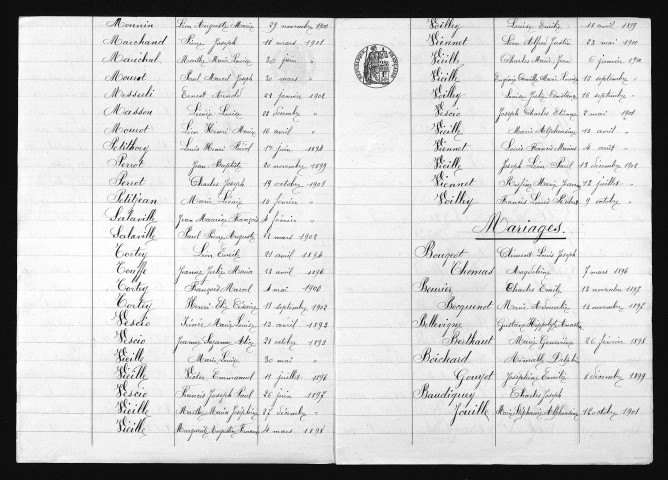 Monnin Léon Auguste Marie 29 novembre 1900
Marchand Pierre Joseph 11 mars 1901
Maréchal Marthe Marie Louise 30 juin "
Mourot Paul Marcel Joseph 30 mars "
Messerli Ernest Arnold 22 janvier 1902
Masson Louise Lucie 22 décembre "
Mourot Léon Henri Marie 16 avril "
Petithory Louis Henri 1er juin 1894
Perrot Jean Baptiste 20 novembre 1899
Perrot Charles Joseph 19 octobre 1901
Petitjean Marie 10 février "
Salaville Jean Maurice François 4 février "
Salaville Paul Pierre Auguste 22 mars 1902
Tortey Léon Emile 21 avril 1894
Touffe Jeanne Julie Maria 23 avril 1896
Tortey François Marcel 4 mai 1900
Tortey Henri 11 septembre 1902
Vescio Irénée Marie Louise 13 avril 1893
Vescio Jeanne Suzanne 21 octobre 1893
Vieille Marie Louise 30 mai "
Vieille Victor Emmanuel 11 juillet 1896
Vescio Francis Joseph Paul 26 juin 1897
Vieille Marthe Marie Joséphine 27 décembre "
Vieille Marguerite Augustine 4 mars 1898
Voilley Louise Emilie 18 avril 1899
Viennet Léon Alfred Justin 23 mai 1900
Vieille Charles Marie Jean 6 janvier 1901
Vieille Eugénie Camille Marie Louise 13 septembre "
Voilley Louise Julie 16 septembre "
Vescio Joseph Charles Etienne 2 mai 1901
Vieille Marie Alphonsine 13 avril "
Viennet Louis Francis Marius 4 août "
Vieille Joseph Léon Paul 13 décembre 1902
Viennet Marie Jeanne 12 juillet "
Voilley Francis Louis 9 octobre "
Mariages.
Bougeot Clément Louis Joseph
Thomas Magdeleine 7 mars 1896
Beurier Charles Emile 13 novembre 1897
Becquenot Marie 13 novembre 1897
Bellevigne Gustave Hippolyte
Berthaut Marie Geneviève 26 février 1898
Boichard Delphin
Gouget Joséphine Emilie 1 décembre 1899
Baudiquey Charles Joseph
Jouille Marie Stéphanie Alphonsine 12 octobre 1901